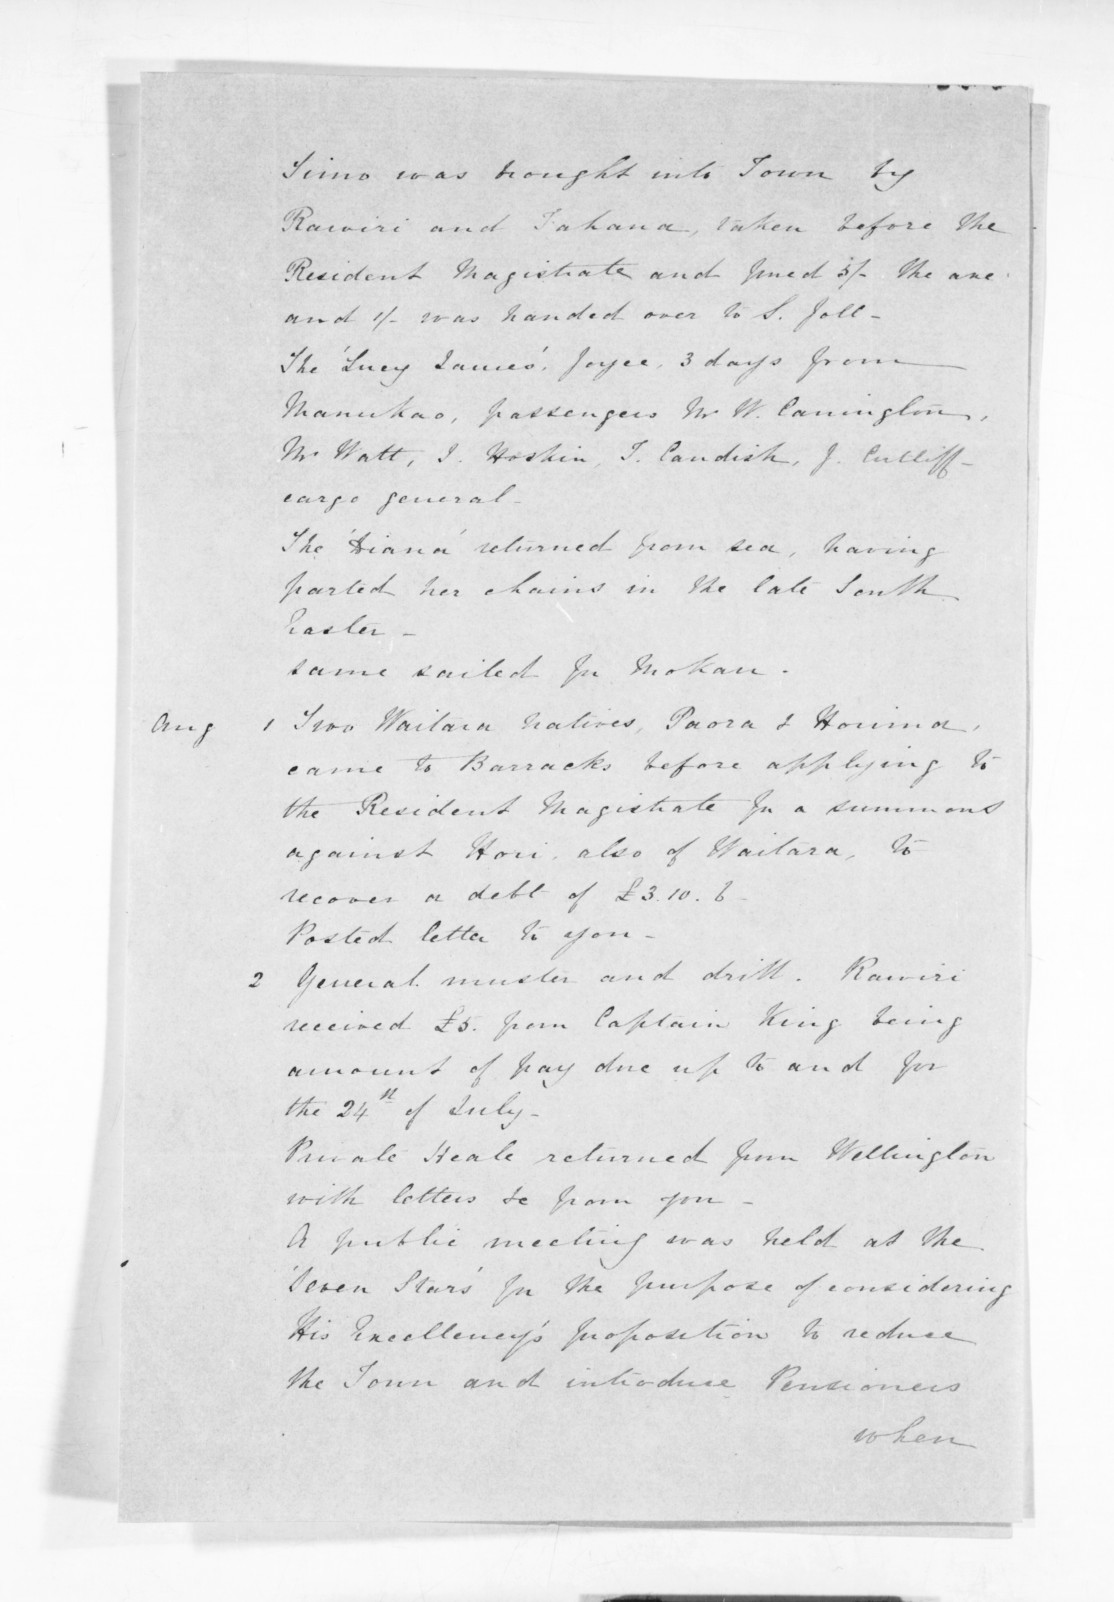 Simo was brought into Town by
Rawiri and Tahana, taken before the
Resident Magistrate and fined 5/- the axe
and 1/- was handed over to S. Joll -
The 'Lucy James'. Joyce, 3 days from
Manukao, passengers Mr W. Carrington,
Mr Watt, J. Hoskin, T. Candish, J. Cutliff -
cargo general -
The 'Diana' returned from sea, having
parted her chains in the late South
Easter -
same sailed for Mokau -
Aug 1 Two Waitara natives, Paora & Horima,
came to Barracks before applying to
the Resident Magistrate for a summons
against Hori, also of Waitara, to
recover a debt of £3.10.6 -
Posted letter to you -
2 General muster and drill. Rawiri
received £5. from Captain King being
amount of pay due up to and for
the 24th of July -
Private Heale returned from Wellington
with letters &c from you -
A public meeting was held at the
'Seven Stars' for the purpose of considering
His Excellency's proposition to reduce
the Town and introduce Pensioners
when